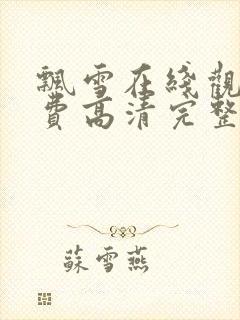 飄雪在綫觀
費高清完整
蘇雪燕